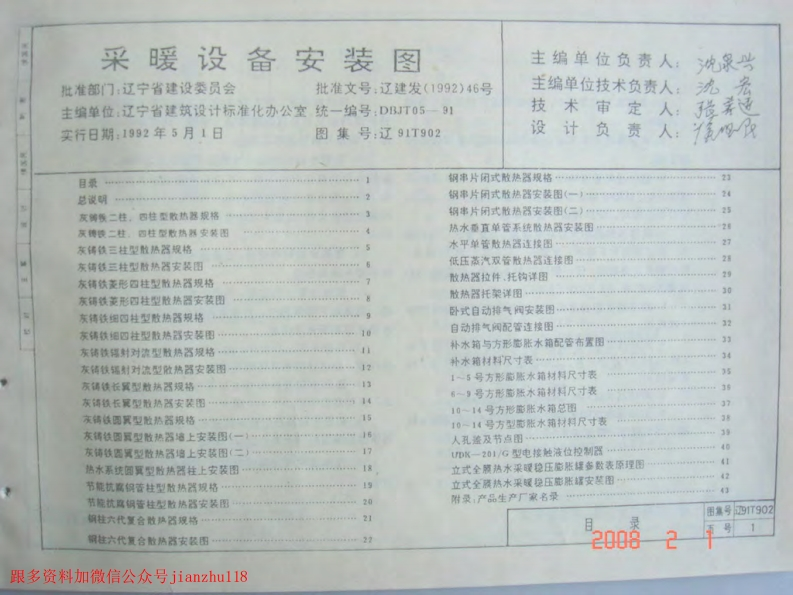 采暖设备安装图
批准部门:辽宁省建设委员会 批准文号:辽建发(1992)46号
主编单位:辽宁省建筑设计标准化办公室 统一编号:DBJT05-91
实行日期:1992年5月1日 图集号:辽91T902
主编单位负责人:
主编单位技术负责人:
技术审定人:
设计负责人:
目录 1
总说明 2
灰铸铁二柱、四柱型散热器规格 3
灰铸铁二柱、四柱型散热器安装图 4
灰铸铁三柱型散热器规格 5
灰铸铁三柱型散热器安装图 6
灰铸铁菱形四柱型散热器规格 7
灰铸铁菱形四柱型散热器安装图 8
灰铸铁细四柱型散热器规格 9
灰铸铁细四柱型散热器安装图 10
灰铸铁辐射对流型散热器规格 11
灰铸铁辐射对流型散热器安装图 12
灰铸铁长翼型散热器规格 13
灰铸铁长翼型散热器安装图 14
灰铸铁圆翼型散热器规格 15
灰铸铁圆翼型散热器墙上安装图(一) 16
灰铸铁圆翼型散热器墙上安装图(二) 17
热水系统圆翼型散热器柱上安装图 18
节能抗腐铜管柱型散热器规格 19
节能抗腐铜管柱型散热器安装图 20
钢柱六代复合散热器规格 21
钢柱六代复合散热器安装图 22
钢串片闭式散热器规格 23
钢串片闭式散热器安装图(一) 24
钢串片闭式散热器安装图(二) 25
热水垂直单管系统散热器安装图 26
水平单管散热器连接图 27
低压蒸汽双管散热器连接图 28
散热器拉件、托钩详图 29
散热器托架详图 30
卧式自动排气阀安装图 31
自动排气阀配管连接图 32
补水箱与方形膨胀水箱配管布置图 33
补水箱材料尺寸表 34
1—5号方形膨胀水箱材料尺寸表 35
6—9号方形膨胀水箱材料尺寸表 36
10—14号方形膨胀水箱总图 37
10—14号方型膨胀水箱材料尺寸表 38
人孔盖及节点图 39
UDK—201/G型电接触液位控制器 40
立式全膜热水采暖稳压膨胀罐参数表原理图 41
立式全膜热水采暖稳压膨胀罐安装图 42
附录:产品生产厂家名录 43
目录 图集号 辽91T902
页号 1
2008 2 1
跟多资料加微信公众号jianzhu118